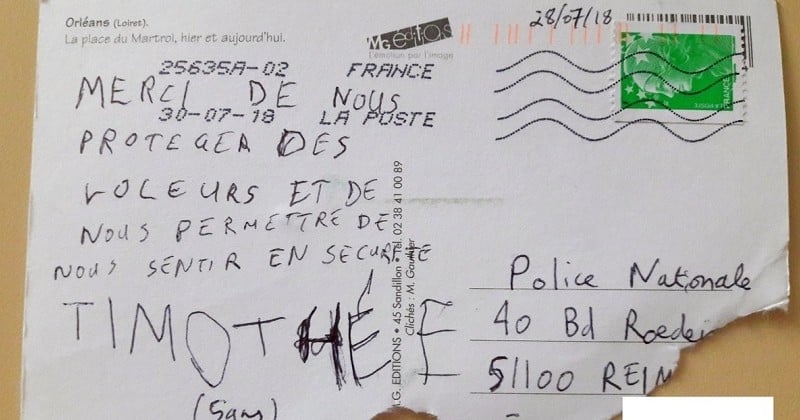 Orléans (Loiret).
La place du Martroi, hier et aujourd'hui.
MG editions
L'émotion par l'image
28/07/18
25635A-02 FRANCE
30-07-18 LA POSTE
FRANCE
MERCI DE NOUS
PROTEGER DES
VOLEURS ET DE
NOUS PERMETTRE DE
NOUS SENTIR EN SECURITE
TIMOTHÉE
M.G. EDITIONS • 45 Sandillon • Tél. 02 38 41 00 89
Clichés : M. Gaultier
Police Nationale
40 Bd Roede
51100 REIM